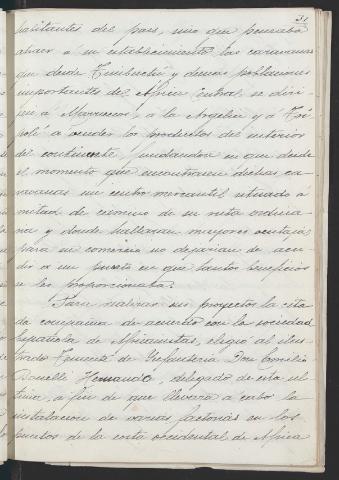 31
habitantes del pais, sino que pensaba
atraer a su establecimiento las caravanas
que desde Timbuctú y demas poblaciones
importantes del Africa Central se diri-
jen á Marruecos, á la Argelia y á Trí-
poli á vender los productos del interior
del continente, fundandose en que desde
el momento que encontrasen dichas ca-
ravanas un centro mercantil situado á
mitad de camino de su ruta ordina-
ria y donde hallaran mayores ventajas
para su comercio no dejarian de acu-
dir á un puesto en que tantos beneficios
se les proporcionaba.
Para realizar sus proyectos la cita-
da compañia de acuerdo con la sociedad
Española de Africanistas, eligió al ilus-
trado Teniente de Infanteria Don Emilio
Bonelli Hernando, delegado de esta ul-
tima, á fin de que llevara á cabo la
instalacion de varias factorias en los
puertos de la costa occidental de Africa